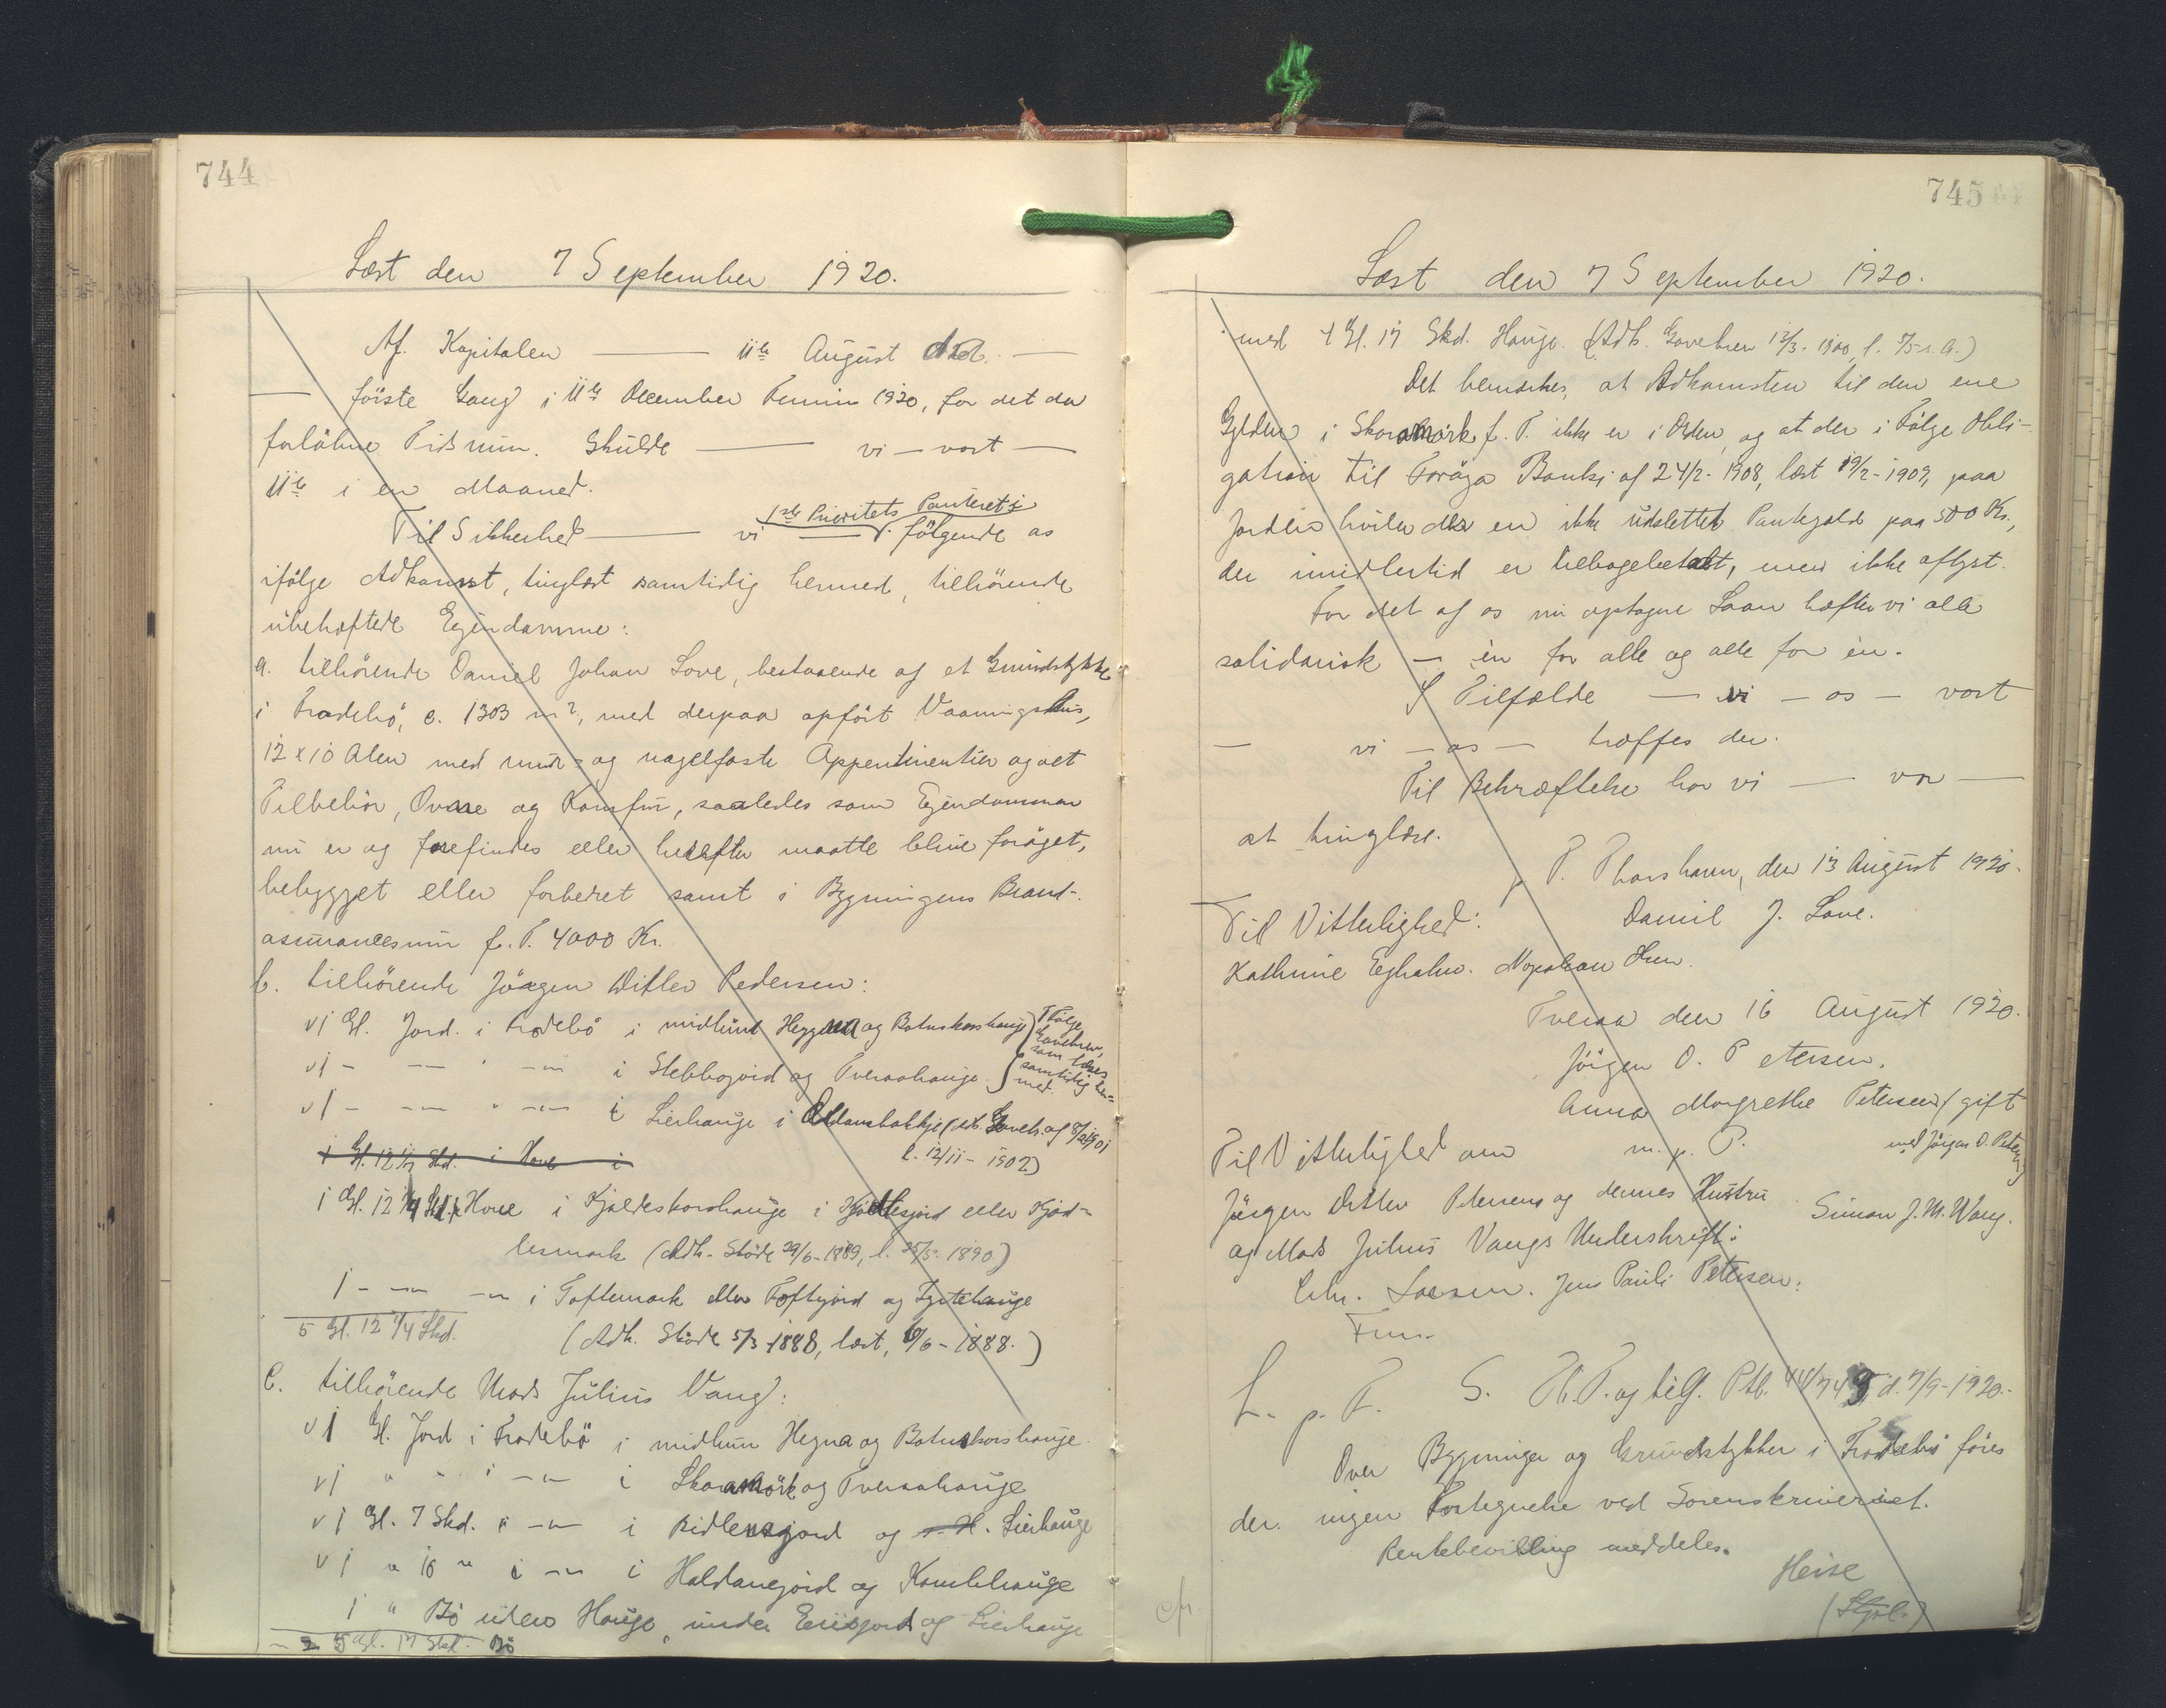 744
Læst den 7 September 1920.
Af Kapitalen — 11te August
— förste Gang i 11te December Termin 1920, for det da
forløbne Tidsrum. Skulde — vi — vort —
11te i en Maaned.
Til Sikkerhed — vi — 1ste Prioritets Panteret i følgende os
ifølge Adkomst, tinglæst samtidig hermed, tilhørende
ubehæftede Ejendomme:
a. tilhørende Daniel Johan Love, bestaaende af et Grundstykke
i Frodebø, c. 1303 m², med derpaa opført Vaaningshus,
12 x 10 Alen med mur- og nagelfaste Appertinentier og alt
Tilbehør, Ovne og Komfur, saaledes som Ejendommen
nu er og forefindes eller herefter maatte blive forøget,
bebygget eller forbedret samt i Bygningens Brand-
assurancesum f. T. 4000 Kr.
b. tilhørende Jörgen Ditlev Pedersen:
v 1 Gl. Jord i Frodebø i midlun Heygna og Botnskorshauge
v 1 - — " — i Stebbogjord og Tveraahauge
} Ifølge Gavebrev, som læses samtidig her= med.
v 1 - — " — i Lierhauge i (Adk. Gaveb. af 8/2 1901
l. 12/11 - 1902)
1 Gl. 12 1/4 Skd. i Hove i
1 Gl. 12 1/4 Skd. i Hove i Kjældeskorshauge i eller Kjød-
lesmark (Adk. Skøde 29/6 - 1889, l. 25/5 - 1890)
1 - — — i Toftemark eller Toftegjord og
5 Gl. 12 1/4 Skd. (Adk. Skøde 5/3 - 1888, læst, 6/6 - 1888.)
C. tilhørende Mads Julius Vang:
v 1 Gl. Jord i Frodebø i midlun Hegna og Botnskorshauge.
v 1 " " i — i Skoramörk og Tveraahauge
v 1 Gl. 7 Skd. i — i Ridlensgjord og Lierhauge
v 1 " 10 " i — i Haldansgjord og Kambhauge
1 " Bø uden Hauge, under Eriksgjord og Lierhauge
5 Gl. 17 Skd. Bø
745
Læst den 7 September 1920.
med 4 Gl. 17 Skd. Hauge. (Adk. Gavebrev 12/3 - 1900, l. 7/5 s. A.)
Det bemærkes, at Adkomsten til den ene
Gylden i Skoramörk f. T. ikke er i Orden, og at der i Følge Obli-
gation til Færøya Banki af 24/2 - 1908, læst 19/2 - 1909, paa
Jorden hviler der en ikke udslettet Pantegæld paa 500 Kr.,
der imidlertid er tilbagebetalt, men ikke aflyst.
For det af os nu optagne Laan hæfter vi alle
solidarisk — én for alle og alle for én.
I Tilfælde — vi — os — vort
— vi — os — træffes der.
Til Bekræftelse har vi — vor —
at tinglæse.
p. T. Thorshavn, den 13 August 1920.
Til Vitterlighed: Daniel J. Love.
Kathrine Egholm. Napoleon
Tveraa den 16 August 1920.
Jörgen D. Petersen.
Anna Margrethe Petersen / gift
m. p. P. med Jörgen D. Petersen
Til Vitterlighed om
Jörgen Ditlev Petersens og dennes Hustru Simon J. M. Vang.
og Mads Julius Vangs Underskrift:
Chr. Larsen. Jens Pauli Petersen.
L. p. T. S. H. T. og tilf. Ptb. d. 7/9 - 1920.
Over Bygninger og Grundstykker i Frodebø føres
der ingen Fortegnelse ved Sorenskriveriet.
Rentebevilling meddeles.
Heise